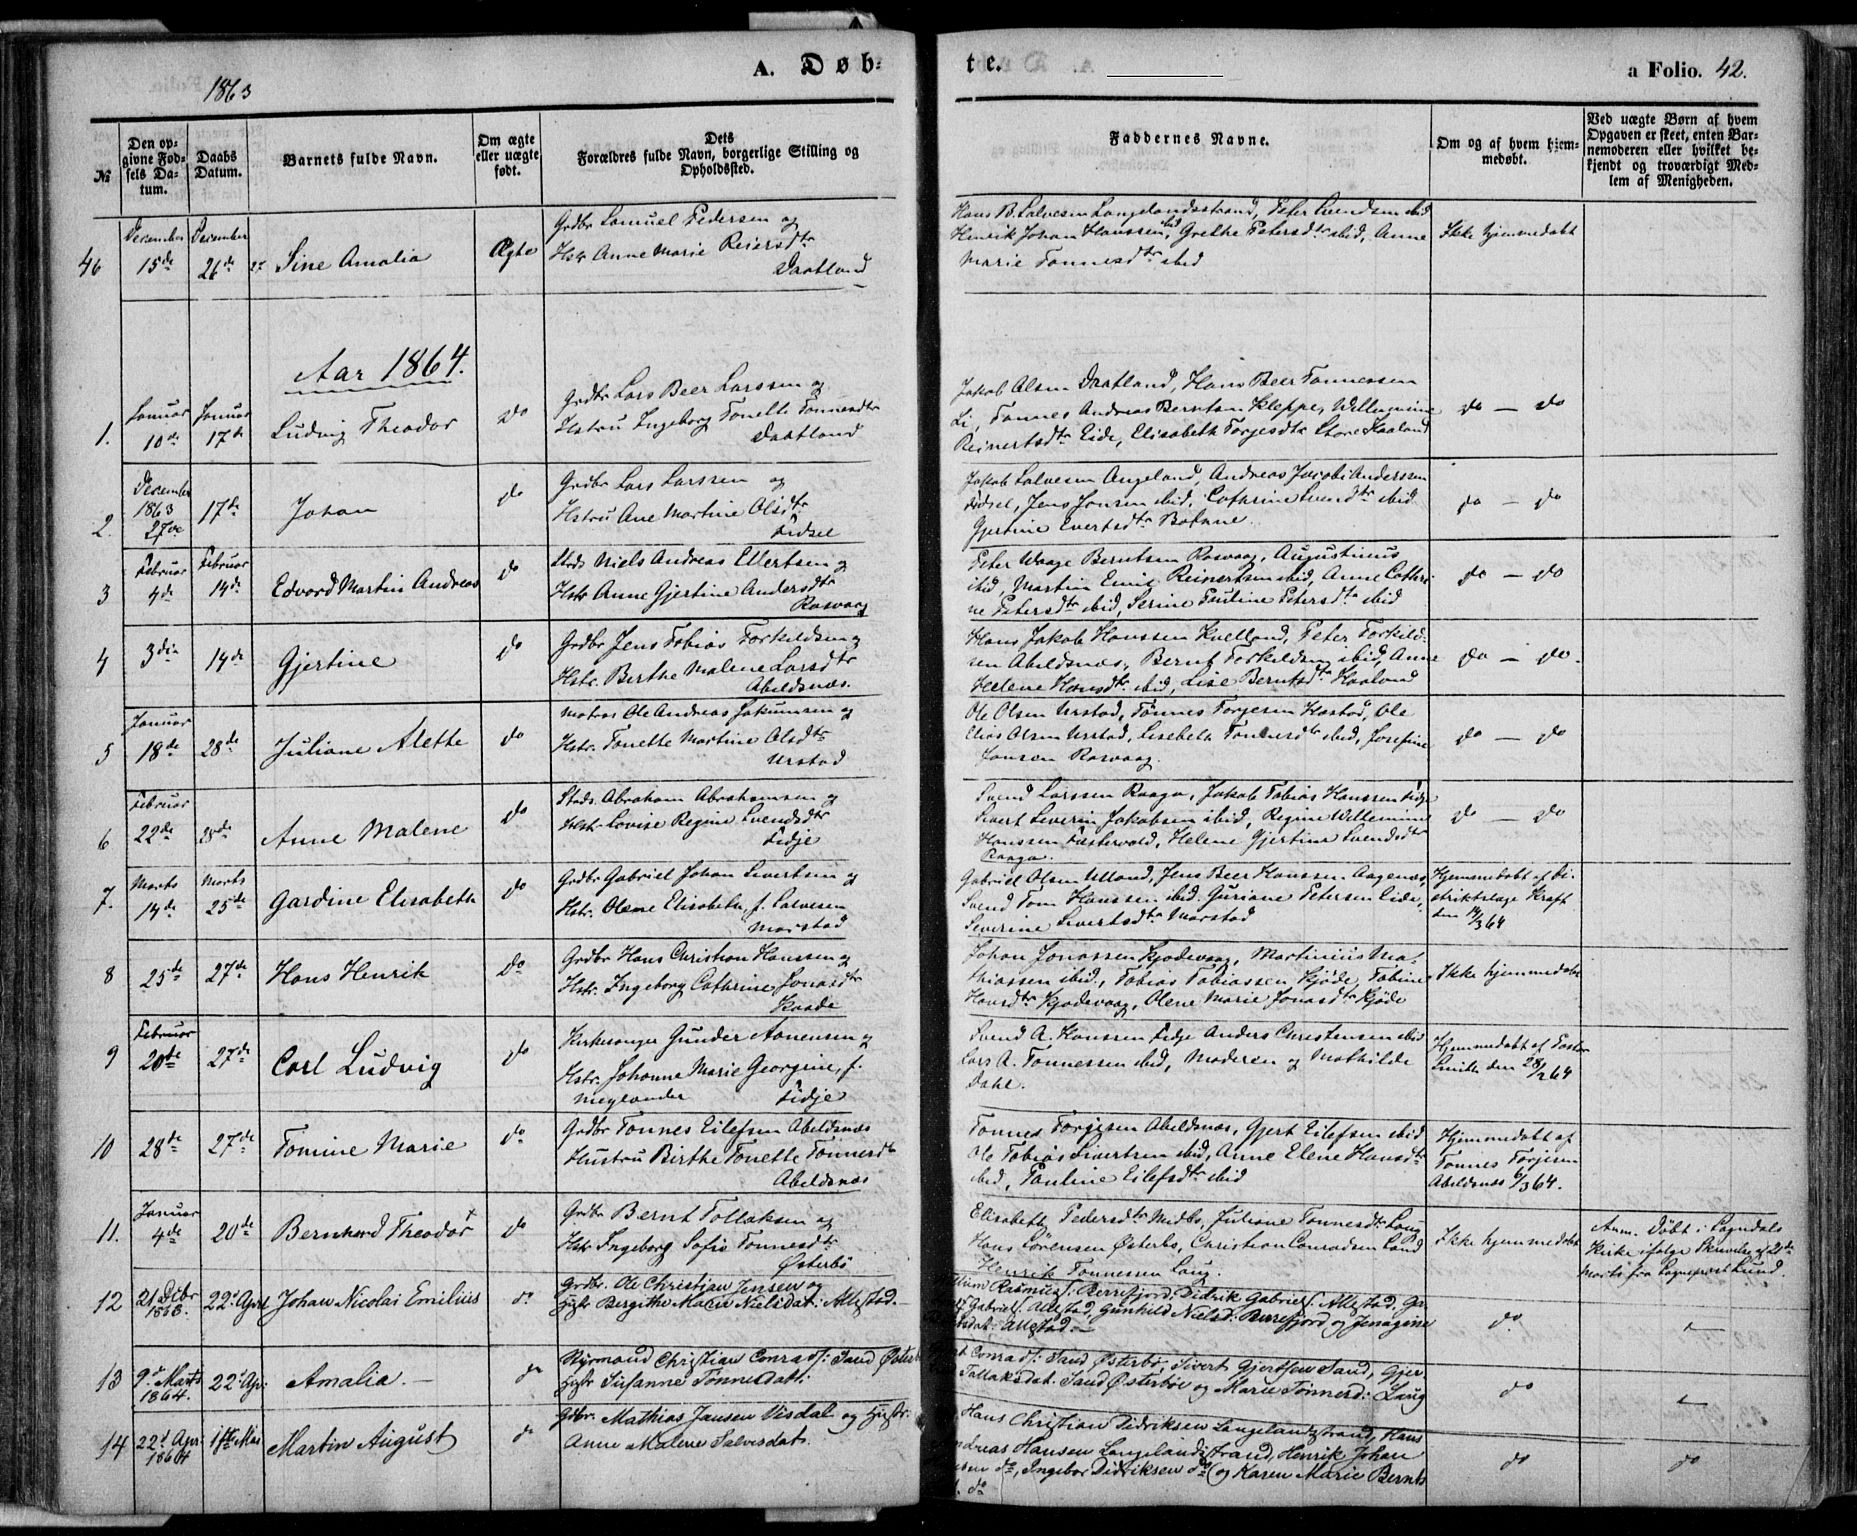 1863
A. Døb-
te.
a Folio. 42.
№
Den op-
givne Fød-
sels Da-
tum.
Daabs
Datum.
Barnets fulde Navn.
Om ægte
eller uægte
født.
Dets
Forældres fulde Navn, borgerlige Stilling og
Opholdssted.
Faddernes Navne.
Om og af hvem hjem-
medøbt.
Ved uægte Børn af hvem
Opgaven er skeet, enten Bar-
nemoderen eller hvilket be-
kjendt og troværdigt Med-
lem af Menigheden.
46
December
15de
December
26de
27
Sine Amalia
Ægte
Grdbr Samuel Pedersen og
Hstr Anne Marie Reiersdtr
Daatland
Hans B. Salvesen Langelandsstrand, Peter Svendsen ibid
Henrik Johan Hanssen ibid, Grethe Petersdtr ibid, Anne
Marie Tønnesdtr ibid
Ikke hjemmedøbt
Aar 1864.
1.
Januar
10de
Januar
17de
Ludvig Theodor
do
Grdbr Lars Beer Larssen og
Hstru Ingeborg Tonette Tønnesdtr
Daatland
Jakob Olsen Daatland, Hans Beer Tønnessen
Li, Tønnes Andreas Berntsen Kleppe, Willumine
Reinertsdtr Eide, Elisabeth Torgesdtr Store Haaland
do — do
2.
December
1863
27de
17de
Johan
do
Grdbr Lars Larssen og
Hstru Ane Martine Olsdtr
Fidsel
Jakob Salvesen Angeland, Andreas Jacobi Anderssen
Fidsel, Jens Jonsen ibid, Cathrine Svendsdtr ibid
Gjertine Evertsdtr Botnne.
do — do
3
Februar
4de
Februar
14de
Edvard Martin Andreas
do
Strds Niels Andreas Ellertsen og
Hstr Anne Gjertine Andersdtr
Rasvaag
Peter Waage Berntsen Rasvaag, Augustinus
ibid, Martin Emil Reinertsen ibid, Anne Cathri-
ne Petersdtr ibid, Serine Pauline Petersdtr ibid
do — do
4
3die
14de
Gjertine
do
Grdbr Jens Tobias Torkildsen og
Hstr. Berthe Malene Larsdtr
Abildsnæs.
Hans Jakob Hanssen Kvelland, Peter Torkild-
sen Abildsnæs, Bernt Torkildsen ibid, Anne
Helene Hansdtr. ibid, Lise Berntsdtr Haaland
do — do.
5
Januar
18de
28de
Juliane Alette
do
Matros Ole Andreas Jakumsen og
Hstr. Tonette Martine Olsdtr
Urstad
Ole Olsen Urstad, Tønnes Torgesen Hastad, Ole
Elias Olsen Urstad, Lisebeth Tønnesdtr ibid, Josefine
Jonsen Rasvaag.
do — do
6
Februar
22de
28de
Anne Malene
do
Strds. Abraham Abrahamsen og
Hstr Lovise Regine Svendsdtr
Fidje
Svend Larssen Raaga, Jakob Tobias Hanssen Fidje
Sivert Severin Jakobsen ibid, Regine Willemine
Hanssen Fastervold, Helene Gjertine Svendsdtr
Raaga.
do — do
7.
Marts
14de
Marts
25de
Gardine Elisabeth
do
Grdbr Gabriel Johan Sivertsen og
Hstr. Olene Elisabeth, f. Salvesen
Marstad
Gabriel Olsen Ulland, Jens Beer Hanssen Aagenæs,
Svend Tom Hanssen ibid. Guriane Petersen Eide,
Severine Sivertsdtr Marstad
Hjemmedøbt af Di-
striktslæge Kraft
den 14/3 64
8
25de
27de
Hans Henrik
do
Grdbr Hans Christian Hanssen og
Hstr. Ingeborg Cathrine Jonasdtr
Kaade
Johan Jonassen Kjødevaag, Martinius Ma-
thiassen ibid., Tobias Tobiassen Kjøde, Tobine
Hansdtr Kjødevaag, Olene Marie Jonasdtr Kjøde
Ikke hjemmedøbt
9
Februar
20de
27de
Carl Ludvig
do
Kirkesanger Gunder Aanensen og
Hstr. Johanne Marie Georgine, f.
Meglander Fidje
Svend A. Hanssen Fidje Anders Christensen ibid
Lars A. Tønnessen ibid, Moderen og Mathilde
Dahl.
Hjemmedøbt af Pastor
Smith den 28/2 64
10
28de
27de
Tomine Marie
do
Grdbr Tønnes Eilefsen Abildsnæs
Hustru Birthe Tonette Tønnesdtr
Abeldsnæs
Tønnes Torjesen Abeldsnæs, Gjert Eilefsen ibid
Ole Tobias Sivertsen ibid, Anne Elene Hansdtr
ibid, Pauline Eilefsdtr ibid
Hjemmedøbt af
Tønnes Torjesen
Abeldsnæs 6/3 64.
11.
Januar
4de
20de
Bernhard Theodor
do
Grdbr Bernt Tollaksen og
Hstr Ingeborg Sofie Tønnesdtr
Østerbø
Elisabeth Pedersdtr Midbø, Juliane Tønnesdtr Laug
Hans Sørensen Østerbø, Christian Conradsen Sand
Henrik Tønnessen Laug.
Ikke hjemmedøbt
Anm. Døbt i Sogndals
Kirke ifølge Skrivelse af 21de
Marts fra Sognepræst Lund.
12
21 Debr
1863.
22d April
Johan Nicolai Emilius
do
Grdbr. Ole Christjan Jensen og
Hustr Bergithe Marie Nielsdat: Allestad.
Rasmus/: Berrefjord, Didrik Gabriels/: Allestad, Ga-
Gabriels/: Allestad, Gunhild Nielsd: Berrefjord og Jensgine
sdat: Allestad. —
do.
13
9d Marts
1864.
22d Apr:
Amalia. —
do
Styrmand Christian Conrads/: Sand Østerb
Hustr Susanne Tønnesdatt:
Conrads/: Sand Østerbø, Sivert Gjertsen Sand, Gjer
Tollaksdat. Sand Østerbøe og Marie Tønnesd: Laug
do
14
22d Apr:
1864
1ste Mai
Martin August
do
Gdbr. Mathias Jansen Visdal og Hustr:
Anne Malene Salvesdat:
Hans Christian Didriksen Langelandstrand, Hans
Andreas Hansen Langelandstrand, Henrik Johan
do, Ingebor Didriksen do og Karen Marie Bernts
do
do
do